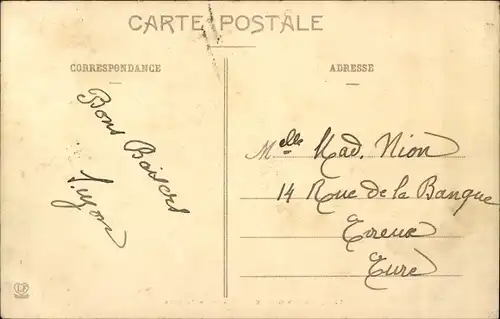 CARTE POSTALE
CORRESPONDANCE
ADRESSE
Bons Baisers
Melle Mad. Nion
14 Rue de la Banque
Evreux
Eure